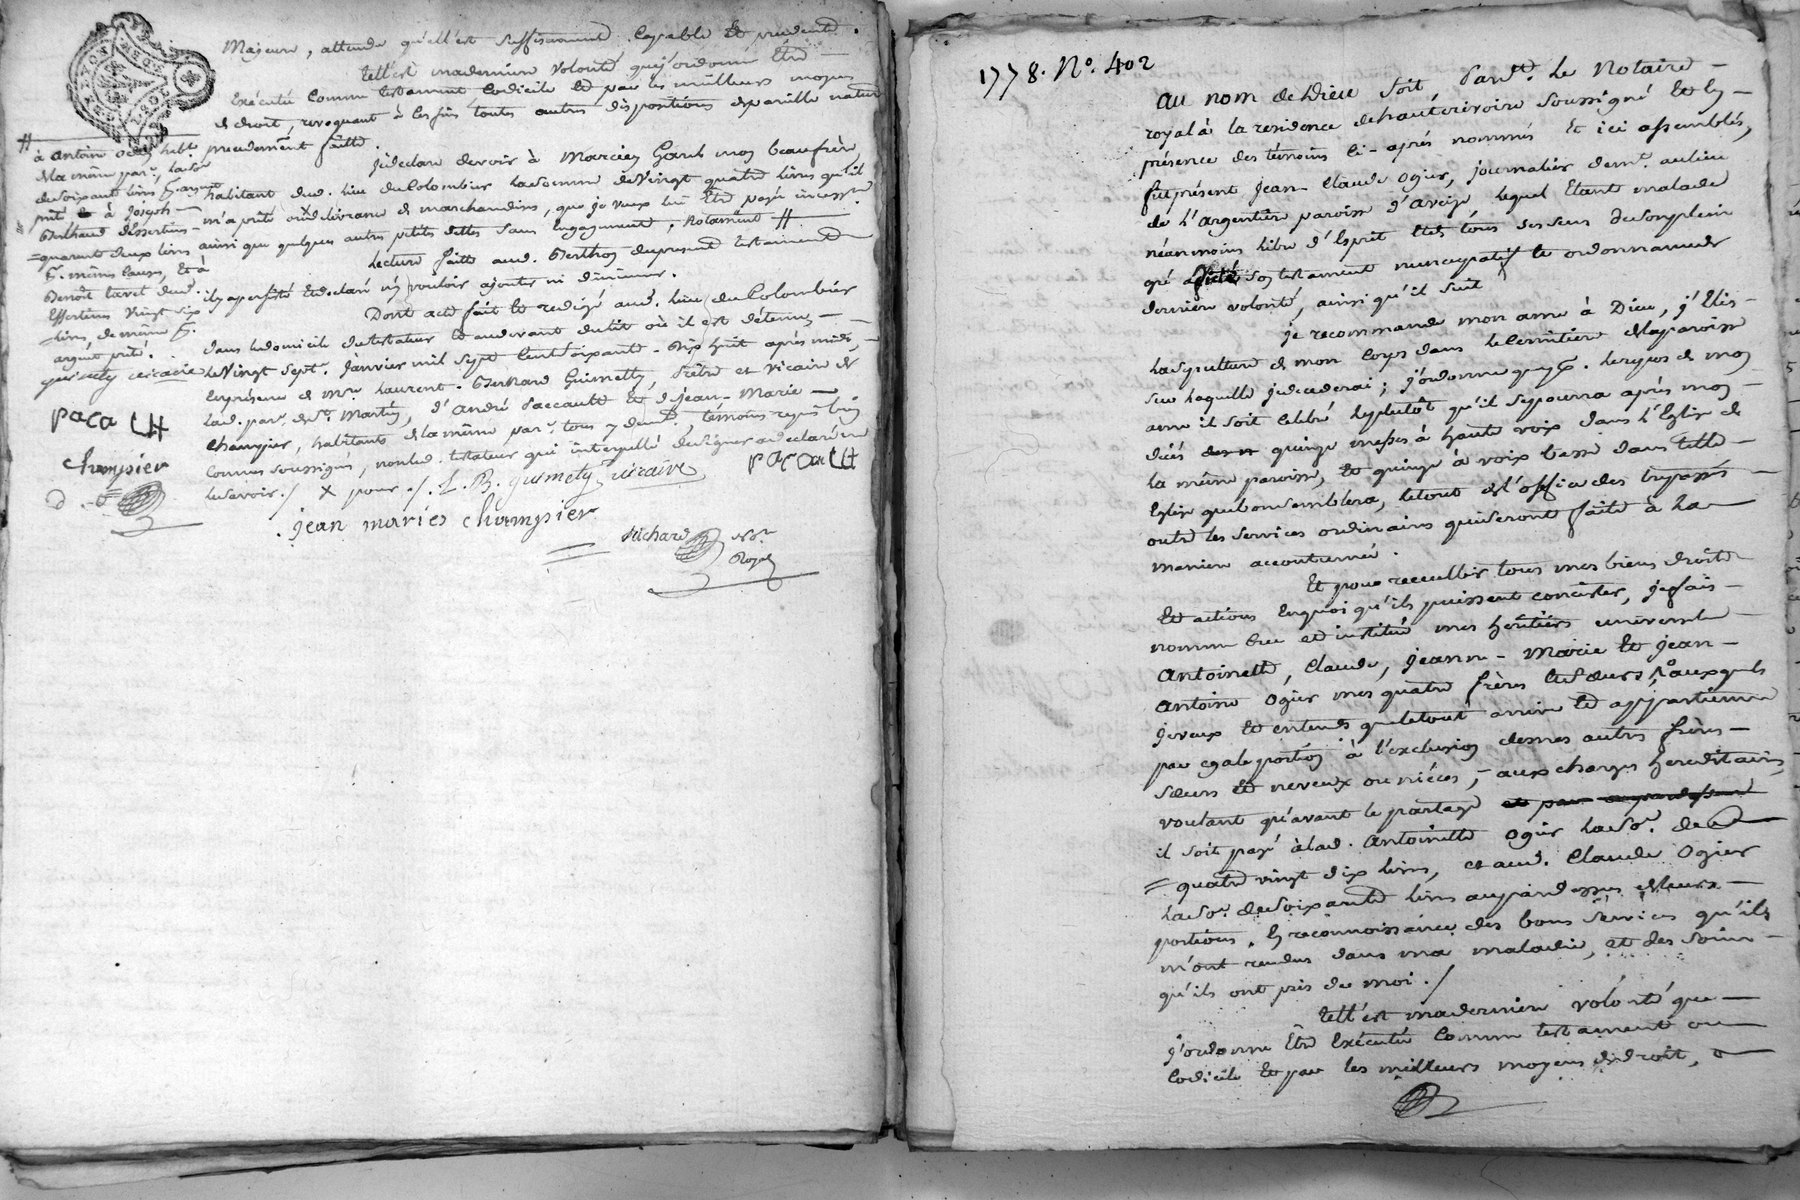 Majeure, attendu qu'ell'est suffisamment capable et prudente.
tell'est ma derniere volonté que j'ordonne Etre
Exécutée comme testament codicile et par les meilleurs moyens
de droit, revoquant à ces fins toutes autres dispositions de pareille nature
precedemment faitte.
je declare devoir à Marcien Garb mon beaufrere
habitant dud. lieu du Colombier la somme de vingt quatre livres qu'il
m'a prêté ou delivrance de marchandises, que je veux lui Etre payé incess.t
ainsi que quelques autres petites dettes sans engagement, Notamment #.
Lecture faitte aud. Berthoy du present testament
il y a persisté Et declaré n'y vouloir ajouter ni diminuer.
Dont acte fait et redigé aud. lieu du Colombier
dans le domicile du testateur et au devant du lit où il est détenu,
le Vingt sept. Janvier mil sept Cent soixante-Dix huit après midi,
En présence de Mre Laurent-Bernard Guimetty, Prêtre et vicaire de
lad. par. de St. Martin, d'andré Paccault et de jean-Marie
Champier, habitants de la même par. tous y demt. témoins requis
Connus soussignés, non led. testateur qui interpellé de signer a declaré ne
le savoir ./ X pour ./. L. B. guimety vicaire
pacault
jean maries champier
Richard not.re
Royal
#
à antoine Odin habt.
de la même par., la so.e
de soixante livres p. argent
prêté à joseph
Berthaud d'Essertines
quarante deux livres
p. même cause, Et à
Benoît tavet dud.
Essertines Vingt six
livres, de même p.
argent prêté.
guimety vicaire
pacault
champier
1778. No. 402
au nom de Dieu soit, Pardt. le Notaire
royal à la residence de hauterivoire soussigné Et en
présence des témoins ci-après nommés Et ici assemblés,
fut présent jean-Claude Ogier, journalier demt. au lieu
de l'argentiere paroisse d'aveize lequel Etant malade
néanmoins libre d'Esprit Etde tous ses sens de son plein
gré a fait son testament nuncupatif et ordonnance de
derniere volonté, ainsi qu'il suit
je recommande mon ame à Dieu, j'Elis
la sepulture de mon Corps dans le Cemitiere de la paroisse
sur laquelle je decederai; j'ordonne que p. le repos de mon
ame il soit célébré le plutôt qu'il se pourra après mon
décès quinze messes à haute voix dans l'Eglise de
la même paroisse, Et quinze à voix basse dans telle
Eglise que bon semblera, le tout de l'office des trepassés
outre les services ordinaires qui seront faits à la
maniere accoutumée.
Et pour recueillir tous mes biens droits
Et actions En quoi qu'ils puissent concister, je fais
nomme Cree et institue mes heritiers universels
antoinette, Claude, jeanne-Marie Et jean-
antoine Ogier mes quatre frères Et sœurs, auxquels
je veux Et entends que le tout arrive Et appartienne
par egale portion à l'exclusion de mes autres frères
sœurs Et neveux ou nièces, aux charges hereditaires,
voulant qu'avant le partage
il soit payé à lad. Antoinette Ogier la so.e de
quatre vingt dix livres, et aud. Claude Ogier
la so.e de soixante livres au pardessus de leurs
portions. En reconnoissance des bons services qu'ils
m'ont rendus dans ma maladie, et des soins
qu'ils ont pris de moi ./
tell'est ma derniere volonté que
j'ordonne Etre Exécutée Comme testament ou
Codicile Et par les meilleurs moyens de droit,